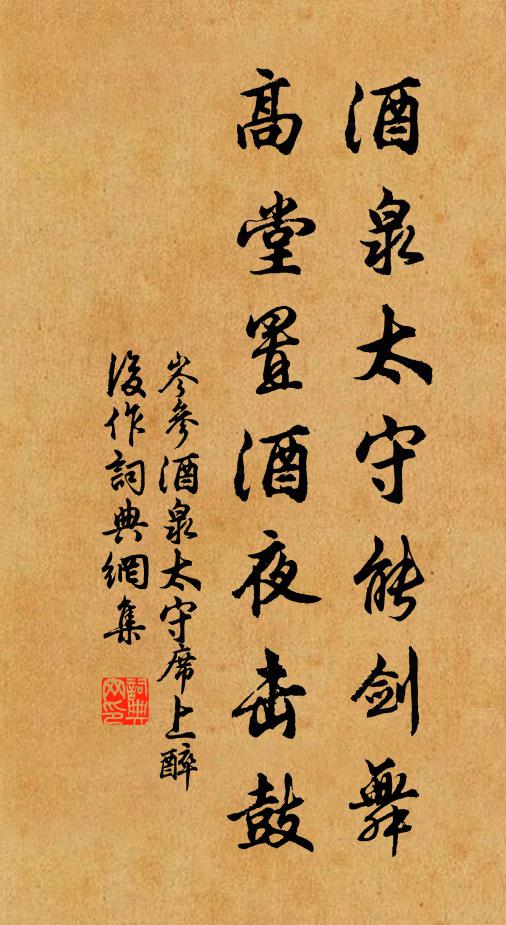 酒泉太守能劍舞
高堂置酒夜击鼓
岑參酒泉太守席上醉
後作詞典網集
詞典
网印